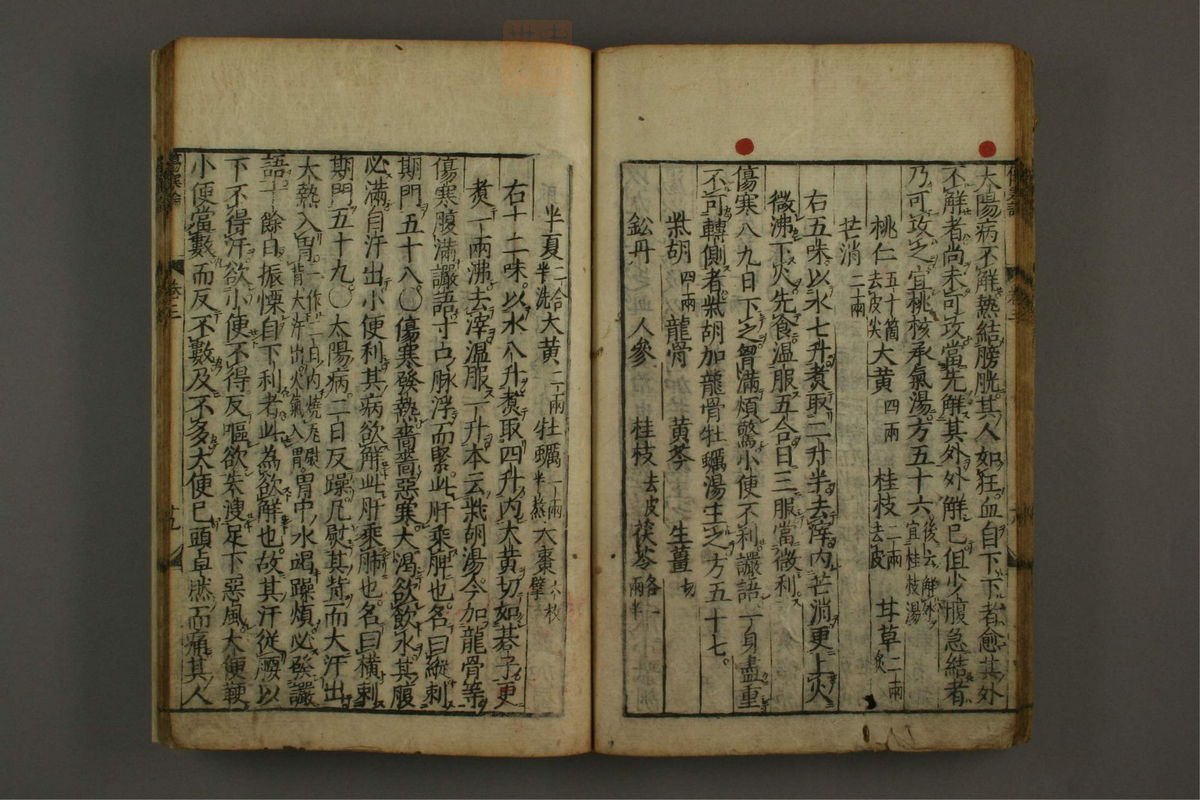 太陽病不解熱結膀胱其人如狂血自下下者愈其外
不解者尚未可攻當先解其外外解已但少腹急結者
乃可攻之宜桃核承氣湯方五十六後云解外宜桂枝湯
桃仁五十箇去皮尖 大黃四兩 桂枝二兩去皮 甘草二兩炙
芒消二兩
右五味以水七升煮取二升半去滓内芒消更上火
微沸下火先食温服五合日三服當微利
傷寒八九日下之胷滿煩驚小便不利讝語一身盡重
不可轉側者柴胡加龍骨牡蠣湯主之方五十七
柴胡四兩 龍骨 黃芩 生薑切
鈆丹 人參 桂枝去皮 茯苓各一兩半
半夏二合半洗 大黃二兩 牡蠣一兩半熬 大棗六枚擘
右十二味以水八升煮取四升内大黃切如碁子更
煮一兩沸去滓温服一升本云柴胡湯今加龍骨等
傷寒腹滿讝語寸口脉浮而緊此肝乘脾也名曰縱刺
期門五十八〇傷寒發熱嗇嗇惡寒大渴欲飲水其腹
必滿自汗出小便利其病欲解此肝乘肺也名曰橫刺
期門五十九〇太陽病二日反躁凡熨其背而大汗出
大熱入胃一作二日内燒瓦熨背大汗出火氣入胃胃中水竭躁煩必發讝
語十餘日振慄自下利者此為欲解也故其汗從腰以
下不得汗欲小便不得反嘔欲失溲足下惡風大便鞕
小便當數而反不數及不多大便已頭卓然而痛其人
傷寒論 卷三 十五